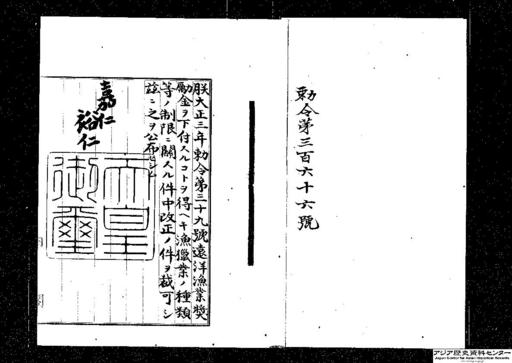 勅令第三百六十六號
朕大正三年勅令第三十九號遠洋漁業奬
勵金ヲ下付スルコトヲ得ヘキ漁獵業ノ種類
等ノ制限ニ關スル件中改正ノ件ヲ裁可シ
茲ニ之ヲ公布セシム
嘉仁
裕仁
天皇
御璽
アジア歴史資料センター
Japan Center for Asian Historical Records